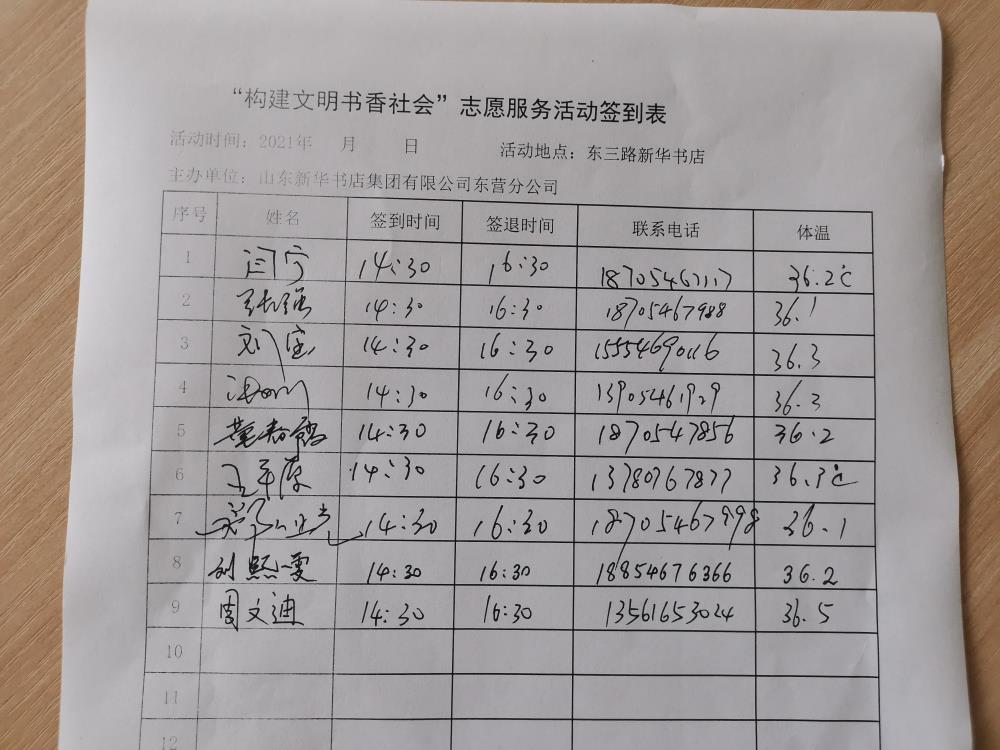 “构建文明书香社会”志愿服务活动签到表
活动时间：2021年 月 日 活动地点：东三路新华书店
主办单位：山东新华书店集团有限公司东营分公司
序号 姓名 签到时间 签退时间 联系电话 体温
1 闫宁 14:30 16:30 18705467117 36.2℃
2 张强 14:30 16:30 18705467988 36.1
3 刘宝 14:30 16:30 15554690116 36.3
4 14:30 16:30 13905461929 36.3
5 14:30 16:30 1870547856 36.2
6 14:30 16:30 13780767877 36.3℃
7 14:30 16:30 18705467998 36.1
8 刘熙雯 14:30 16:30 18854676366 36.2
9 周文迪 14:30 16:30 13561653024 36.5
10
11
12